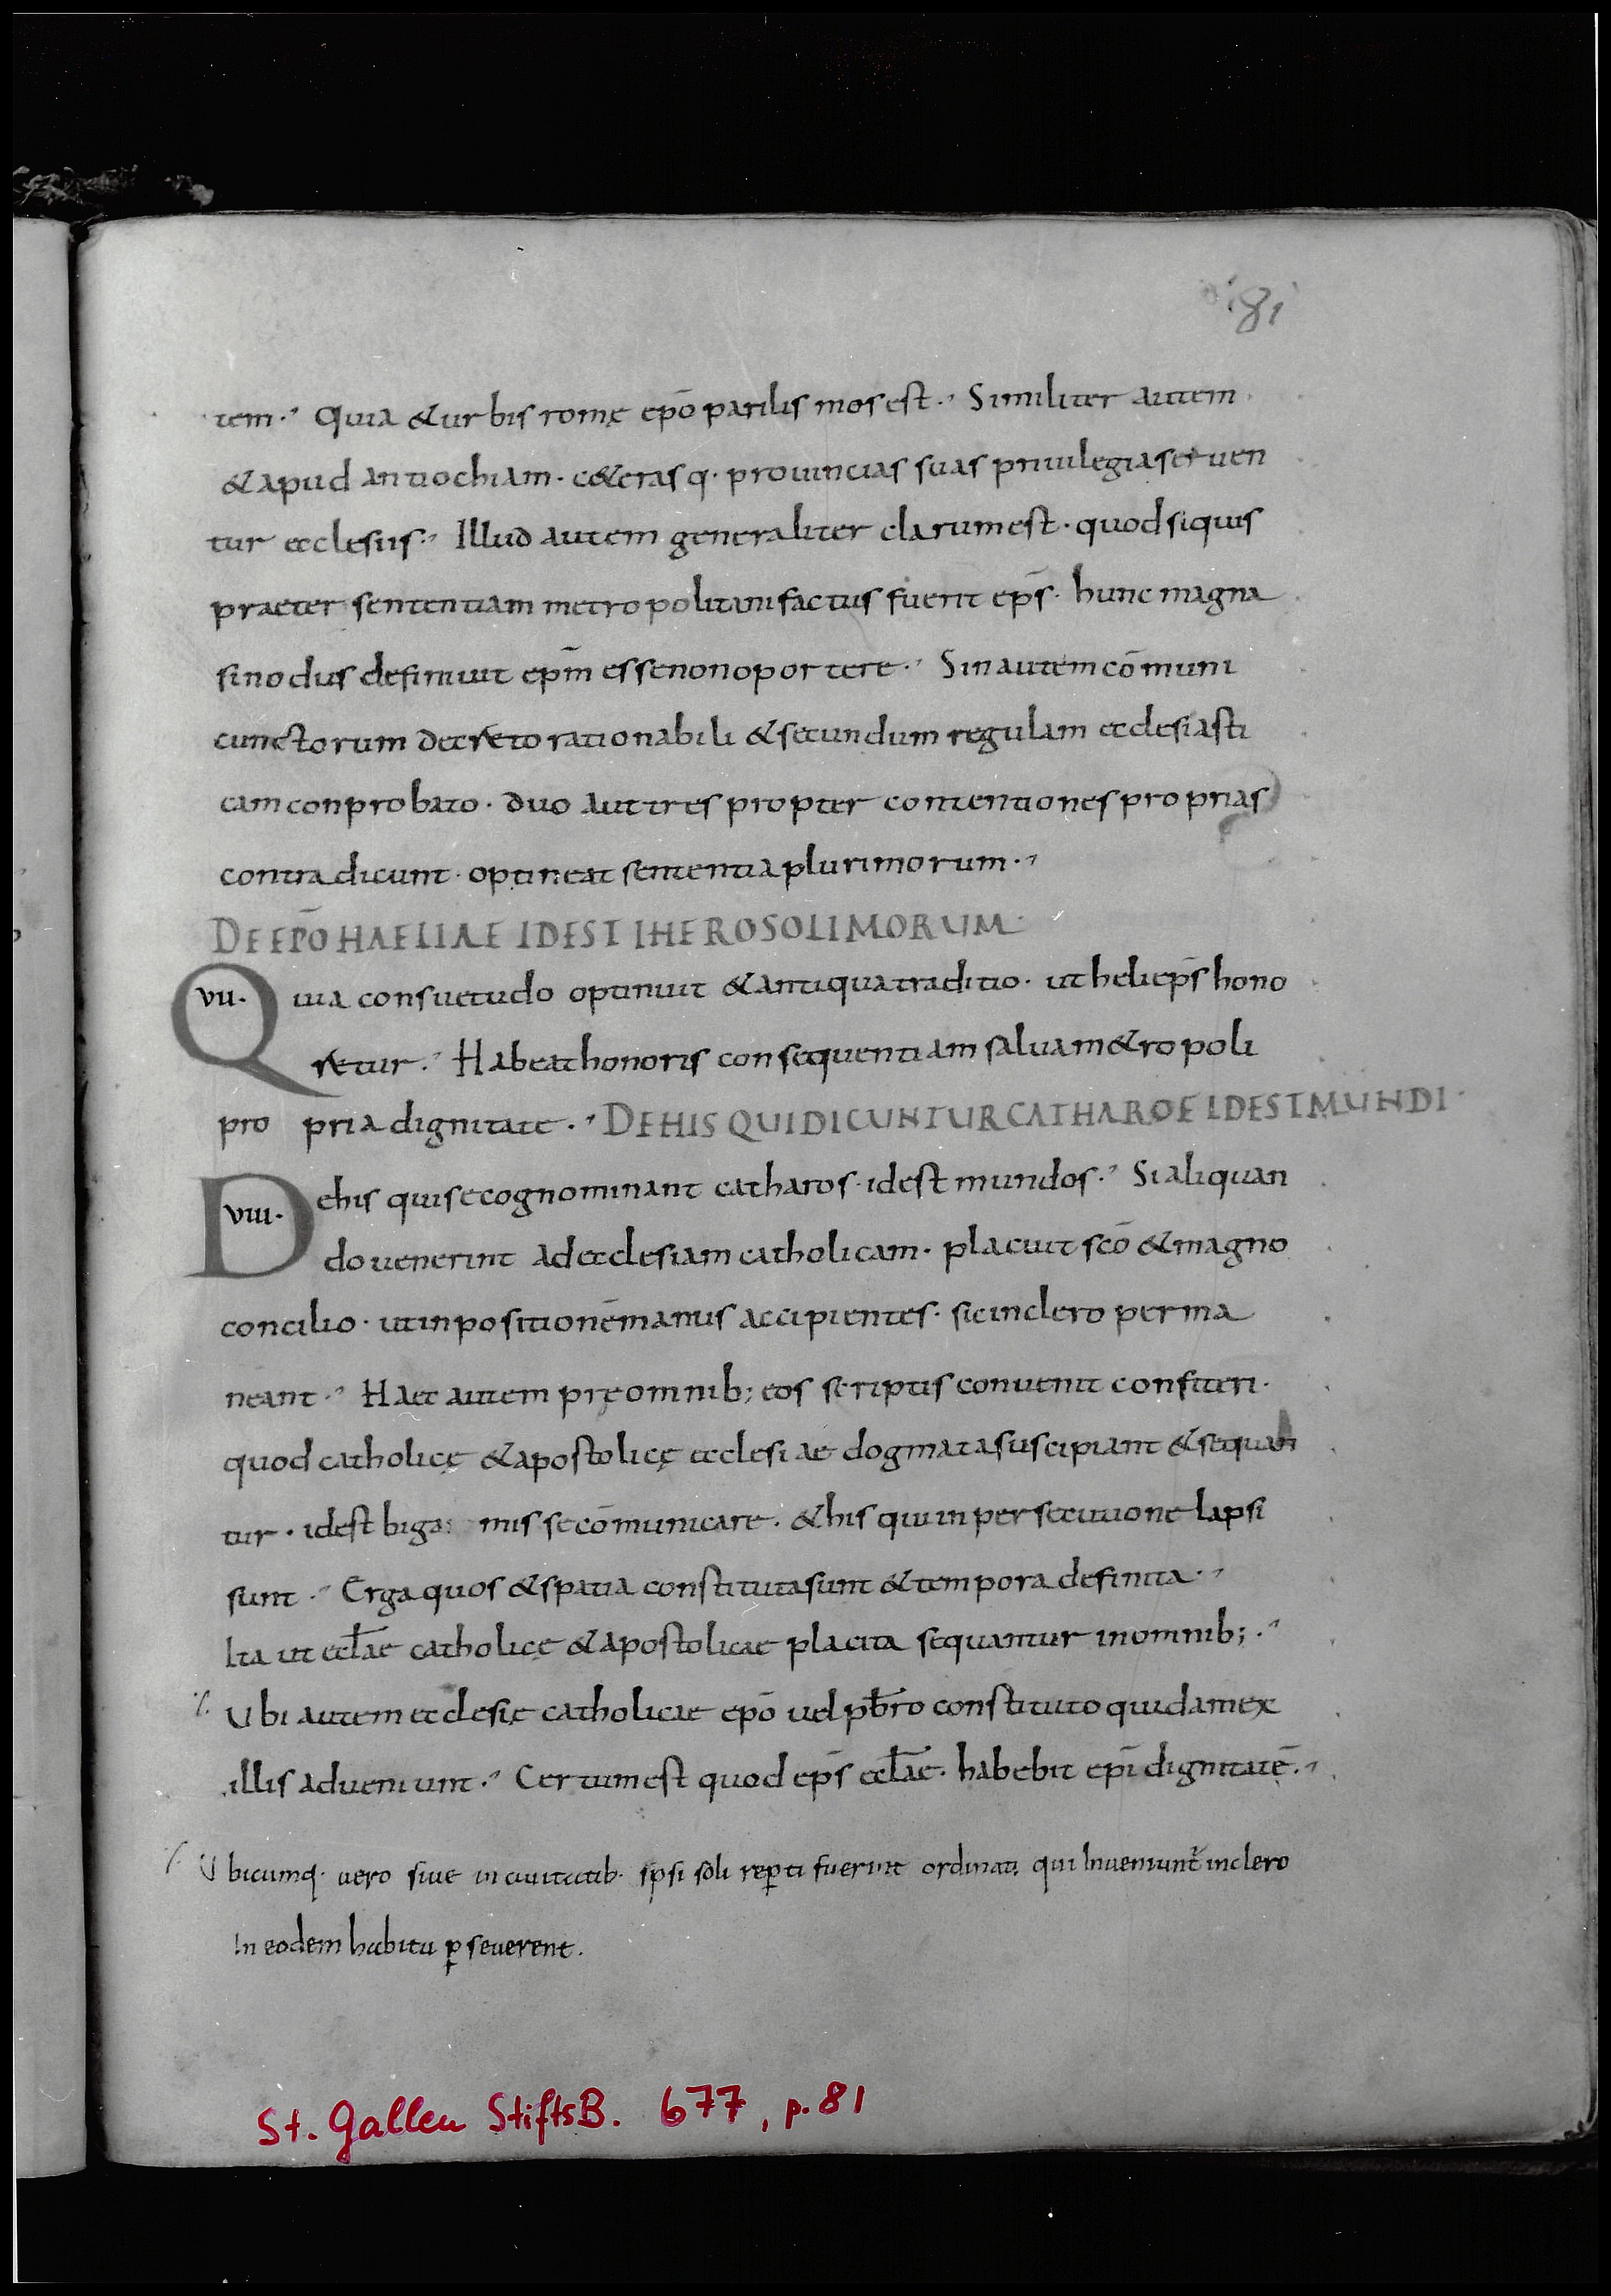 81
tem. Quia & urbis romę ep̄o parilis mos est. Similiter autem
& apud antiochiam. c&eras q. prouincias suas priuilegia seruen
tur ecclesiis. Illud autem generaliter clarum est. quod si quis
praeter sententiam metropolitani factus fuerit ep̄s. hunc magna
sinodus definiuit ep̄m esse non oportere. Sin autem cōmuni
cunctorum decr&o rationabili & secundum regulam ecclesiasti
cam conprobato. duo aut tres propter contentiones proprias
contradicunt. optineat sententia plurimorum.
DE EP̄O HAELIAE IDEST IHEROSOLIMORUM
VII. Quia consuetudo optinuit & antiqua traditio. ut heli ep̄s hono
r&ur. Habeat honoris consequentiam salua m&ropoli
pro pria dignitate. DE HIS QUI DICUNTUR CATHAROE IDEST MUNDI
VIII. De his qui se cognominant catharos. idest mundos. Si aliquan
do uenerint ad ecclesiam catholicam. placuit sc̄o & magno
concilio. ut inpositionē manus accipientes. sic in clero perma
neant. Haec autem prę omnib; eos scriptis conuenit confiteri.
quod catholicę & apostolicę ecclesiae dogmata suscipiant & sequan
tur. idest biga mis se cōmunicare. & his qui in persecutione lapsi
sunt. Erga quos & spatia constituta sunt & tempora definita.
Ita ut eccl̄ae catholicę & apostolicae placita sequantur in omnib;.
Ubi autem ecclesię catholicae ep̄o uel pb̄ro constituto quidam ex
illis adueniunt. Certum est quod ep̄s eccl̄ae. habebit ep̄i dignitatē.
Ubicumq. uero siue in ciuitatib. ipsi soli rep̱ti fuerint ordinati qui Inueniunt̄ in clero
In eodem habitu p̱seuerent.
St. Gallen StiftsB. 677, p. 81